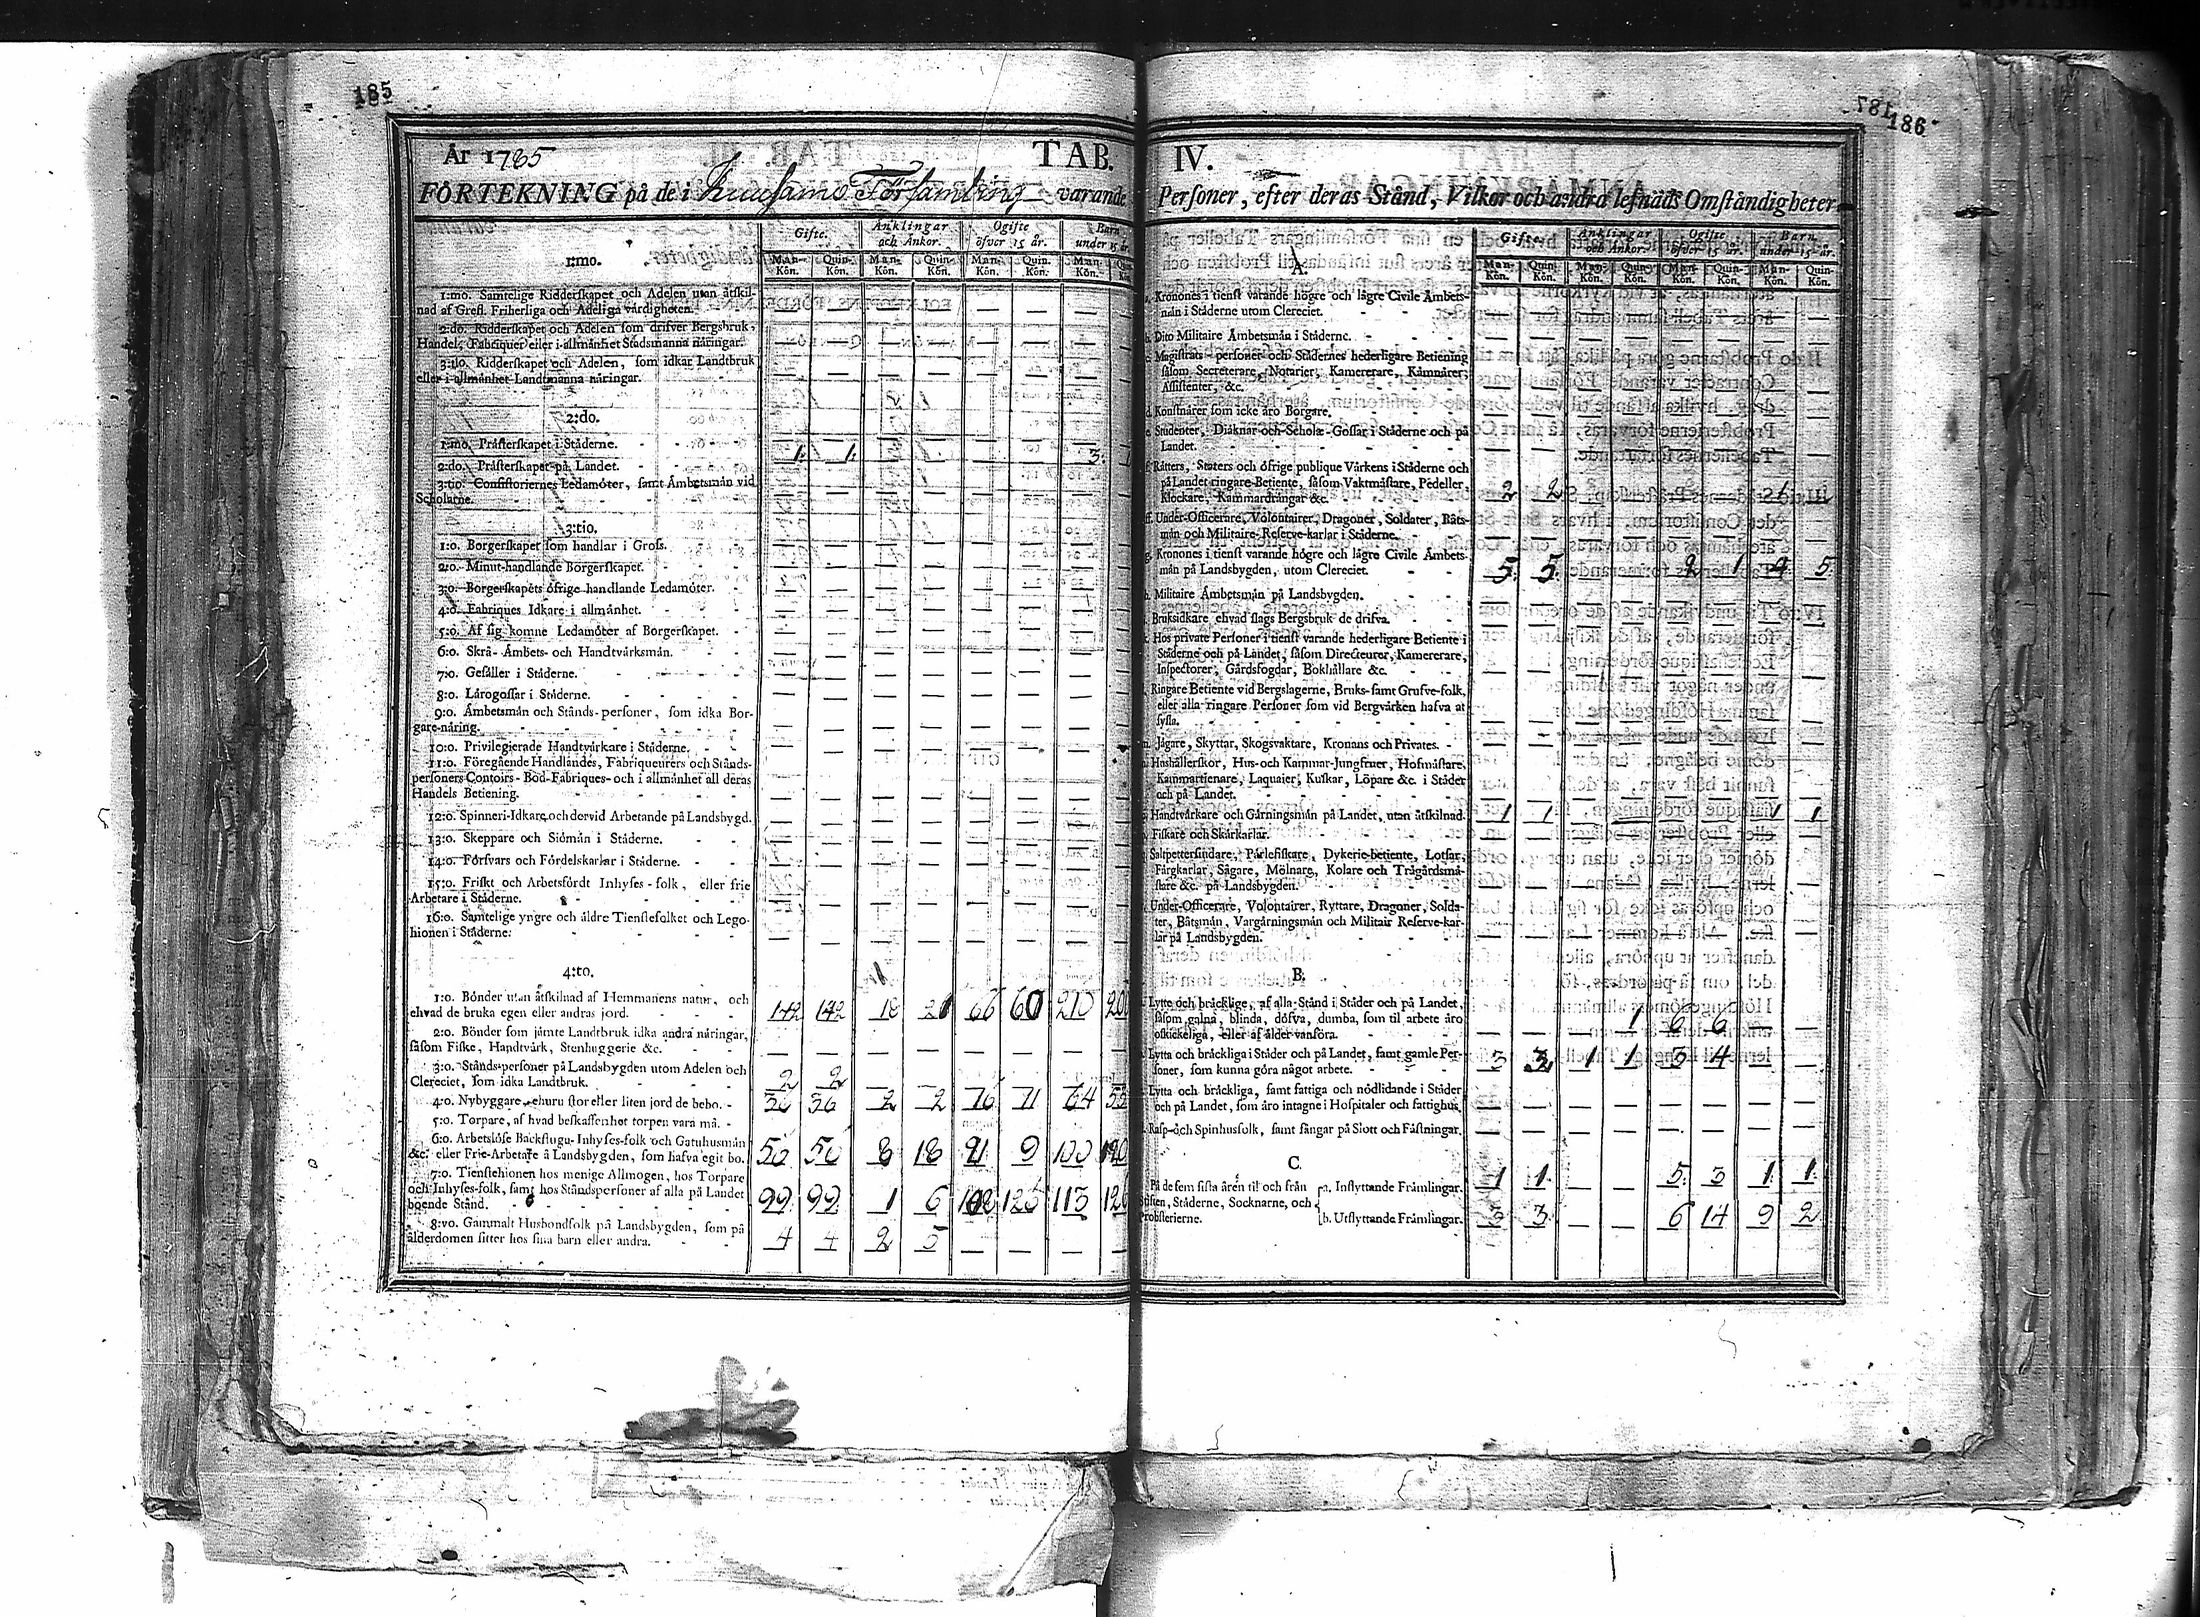 185
187
186
År 1785
TAB. IV.
FÖRTEKNING på de i Kuusamo Församling varande Personer, efter deras Stånd, Vilkor och andra lefnads Omständigheter
1:mo.
Gifte. Änklingar och Änkor. Ogifte öfver 15 år. Barn under 15 år.
Man-Kön. Quin-Kön. Man-Kön. Quin-Kön. Man-Kön. Quin-Kön. Man-Kön. Quin-Kön.
1:mo. Samtelige Ridderskapet och Adelen utan åtskil-
nad af Grefl. Friherliga och Adeliga värdigheten. — — — — — — —
2:do. Ridderskapet och Adelen som drifver Bergsbruk,
Handel, Fabriquer eller i allmänhet Stadsmanna näringar. — — — — — — —
3:tio. Ridderskapet och Adelen, som idkar Landtbruk
eller i allmänhet Landtmanna näringar. — — — — — — —
2:do.
1:mo. Prästerskapet i Städerne. — — — — — — —
2:do. Prästerskapet på Landet. 1. 1. — — — — 3.
3:tio. Consistoriernes Ledamöter, samt Ämbetsmän vid
Scholarne. — — — — — — —
3:tio.
1:o. Borgerskapet som handlar i Gross. — — — — — — —
2:o. Minut-handlande Borgerskapet. — — — — — — —
3:o. Borgerskapets öfrige handlande Ledamöter. — — — — — — —
4:o. Fabriques Idkare i allmänhet. — — — — — — —
5:o. Af sig komne Ledamöter af Borgerskapet. — — — — — — —
6:o. Skrå- Ämbets- och Handtvärksmän. — — — — — — —
7:o. Gesäller i Städerne. — — — — — — —
8:o. Lärogossar i Städerne. — — — — — — —
9:o. Ämbetsmän och Stånds-personer, som idka Bor-
gare-näring. — — — — — — —
10:o. Privilegierade Handtvärkare i Städerne. — — — — — — —
11:o. Föregående Handlandes, Fabriqueurers och Stånds-
personers Contoirs- Bod-Fabriques- och i allmänhet all deras
Handels Betiening. — — — — — — —
12:o. Spinneri-Idkare och dervid Arbetande på Landsbygd. — — — — — — —
13:o. Skeppare och Siömän i Städerne. — — — — — — —
14:o. Försvars och Fördelskarlar i Städerne. — — — — — — —
15:o. Friskt och Arbetsfördt Inhyses-folk, eller frie
Arbetare i Städerne. — — — — — — —
16:o. Samtelige yngre och äldre Tienstefolket och Lego-
hionen i Städerne. — — — — — — —
4:to.
1:o. Bönder utan åtskilnad af Hemmanens natur, och
ehvad de bruka egen eller andras jord. 142 142 18 66 60 210 200
2:o. Bönder som jämte Landtbruk idka andra näringar,
såsom Fiske, Handtvärk, Stenhuggerie &c. — — — — — — —
3:o. Stånds-personer på Landsbygden utom Adelen och
Clereciet, som idka Landtbruk. 2 2 — — — — —
4:o. Nybyggare, ehuru stor eller liten jord de bebo. 36 36 2 2 16 11 64
5:o. Torpare, af hvad beskaffenhet torpen vara må.
6:o. Arbetslöse Backstugu- Inhyses-folk och Gatuhusmän
&c. eller Frie-Arbetare å Landsbygden, som hafva egit bo. 50 50 8 18 9 100
7:o. Tienstehionen hos menige Allmogen, hos Torpare
och Inhyses-folk, samt hos Ståndspersoner af alla på Landet
boende Stånd. 99 99 1 6 125 113
8:vo. Gammalt Husbondfolk på Landsbygden, som på
ålderdomen sitter hos sina barn eller andra. 4 4 2 5 — — — —
A.
Gifte. Änklingar och Änkor. Ogifte öfver 15 år. Barn under 15 år.
Man-Kön. Quin-Kön. Man-Kön. Quin-Kön. Man-Kön. Quin-Kön. Man-Kön. Quin-Kön.
Kronones i tienst varande högre och lägre Civile Ämbets-
män i Städerne utom Clereciet. — — — — — — — —
Dito Militaire Ämbetsmän i Städerne. — — — — — — — —
Magistrats-personer och Städernes hederligare Betiening
såsom Secreterare, Notarier, Kamererare, Kämnärer,
Assistenter, &c. — — — — — — — —
d. Konstnärer som icke äro Borgare. — — — — — — — —
e. Studenter, Diäknar och Scholæ-Gossar i Städerne och på
Landet. — — — — — — — —
f. Rätters, Staters och öfrige publique Värkens i Städerne och
på Landet ringare Betiente, såsom Vaktmästare, Pedeller,
Klockare, Kammardrängar &c. 2 2 — — — — 1
Under-Officerare, Volontairer, Dragoner, Soldater, Båts-
män och Militaire-Reserve-karlar i Städerne. — — — — — — — —
g. Kronones i tienst varande högre och lägre Civile Ämbets-
män på Landsbygden, utom Clereciet. 5. 5. — — 2 1 4 5
h. Militaire Ämbetsmän på Landsbygden. — — — — — — — —
Bruksidkare ehvad slags Bergsbruk de drifva. — — — — — — — —
Hos private Personer i tienst varande hederligare Betiente i
Städerne och på Landet, såsom Directeurer, Kamererare,
Inspectorer, Gårdsfogdar, Bokhållare &c. — — — — — — — —
Ringare Betiente vid Bergslagerne, Bruks- samt Grufve-folk,
eller alla ringare Personer som vid Bergvärken hafva at
syssla. — — — — — — — —
m. Jägare, Skyttar, Skogsvaktare, Kronans och Privates. — — — — — — — —
Hushållerskor, Hus- och Kammar-Jungfruer, Hofmästare,
Kammartienare, Laquaier, Kuskar, Löpare &c. i Städer
och på Landet. — — — — — — — —
Handtvärkare och Gärningsmän på Landet, utan åtskilnad. 1 1 — — — — 1 1
Fiskare och Skärkarlar. — — — — — — — —
Saltpettersiudare, Pärlefiskare, Dykerie-betiente, Lotsar,
Färgkarlar, Sågare, Mölnare, Kolare och Trägårdsmä-
stare &c. på Landsbygden. — — — — — — — —
Under-Officerare, Volontairer, Ryttare, Dragoner, Solda-
ter, Båtsmän, Vargärningsmän och Militair Reserve-kar-
lar på Landsbygden. — — — — — — — —
B.
Lytte och bräcklige, af alla Stånd i Städer och på Landet,
såsom galna, blinda, döfva, dumba, som til arbete äro
oskickeliga, eller af ålder vanföra. — — — 1 6 6 — —
Lytta och bräckliga i Städer och på Landet, samt gamle Per-
soner, som kunna göra något arbete. 3 3 1 1 3 4 — —
Lytta och bräckliga, samt fattiga och nödlidande i Städer
och på Landet, som äro intagne i Hospitaler och fattighus. — — — — — — — —
Rasp- och Spinhusfolk, samt fångar på Slott och Fästningar. — — — — — — — —
C.
På de sem sista åren til och från
Stiften, Städerne, Socknarne, och
Probsterierne.
a. Inflyttande Främlingar. 1 1. — — 5. 3 1. 1.
b. Utflyttande Främlingar. 3 3. — — 6 14 9 2